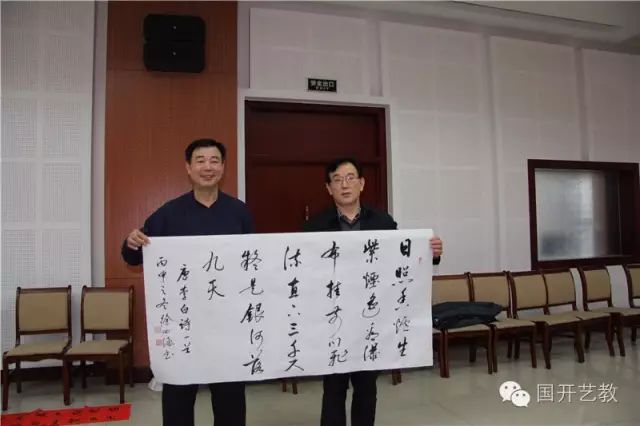 安全出口
EXIT
日照香炉生
紫煙遥看瀑
布挂前川飛
流直下三千尺
疑是銀河落
九天
唐李白诗一首
丙申之冬徐海书
国开艺教